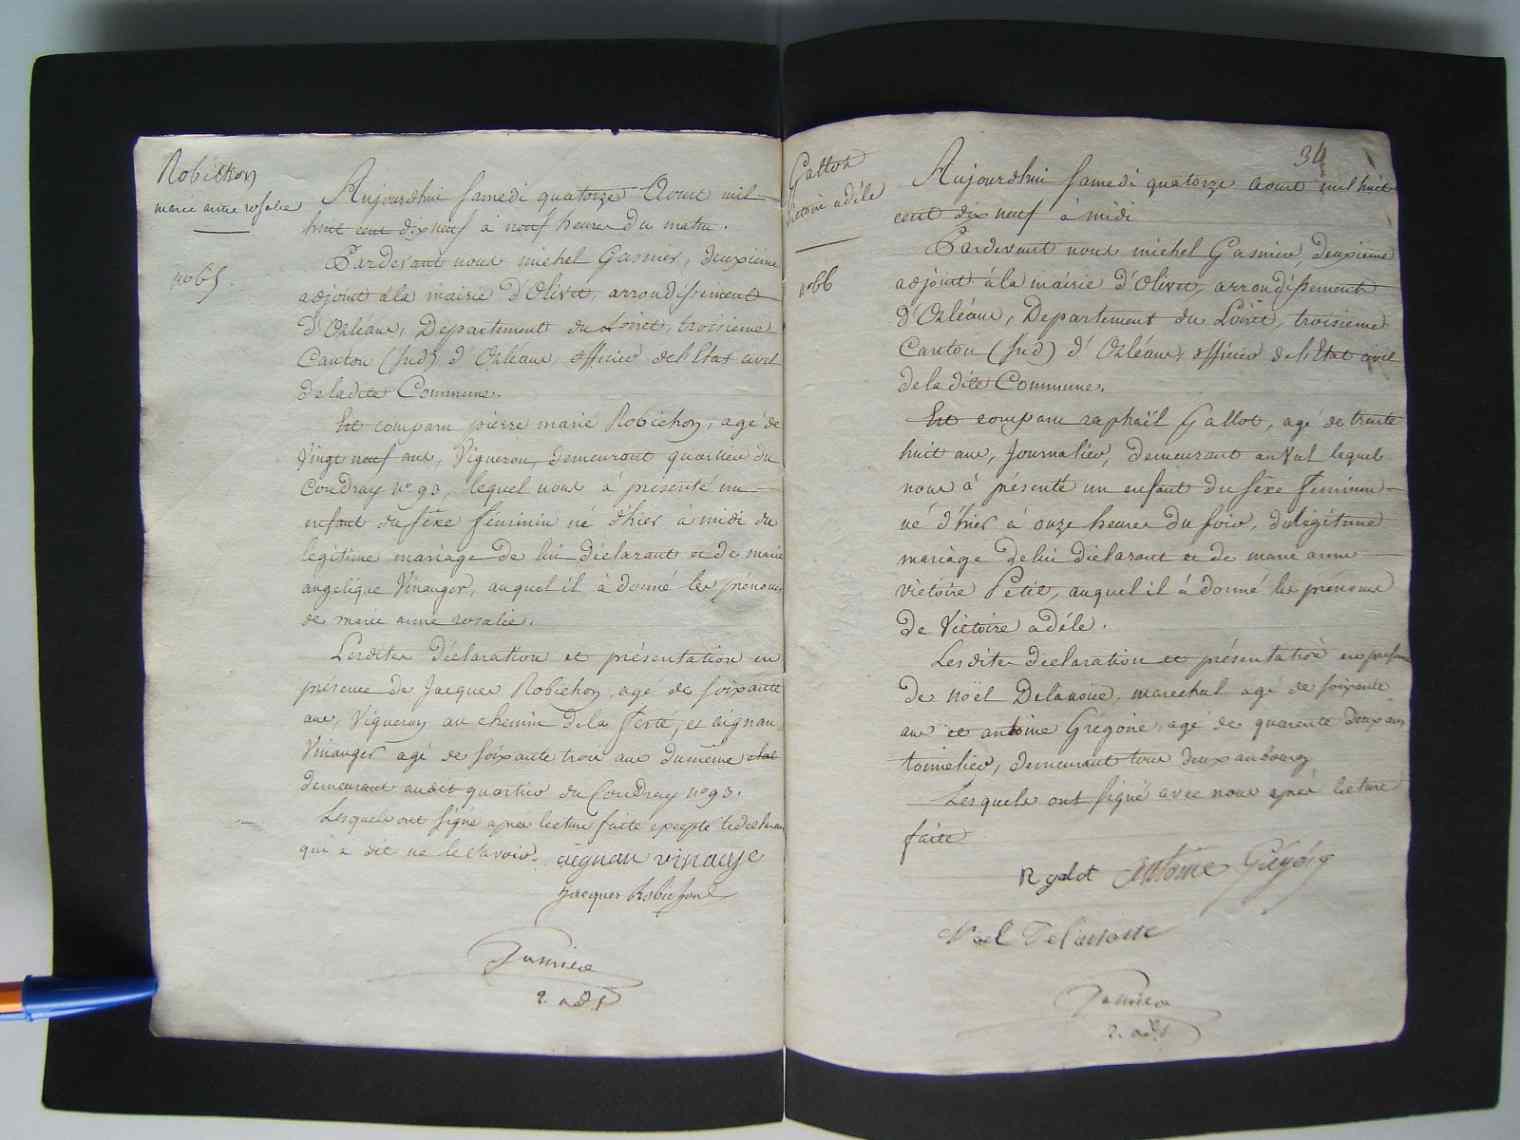 Robichon
marie anne rosalie
n° 65.
Aujourdhui samedi quatorze Aout mil
huit cent dix neuf à neuf heures du matin.
Pardevant nous michel Gasnier, deuxieme
adjoint à la mairie d'Olivet, arrondissement
d'Orléans, Département du Loiret, troisieme
Canton (sud) d'Orléans, officier de l'Etat civil
de la dite Commune.
Est comparu pierre marie Robichon, agé de
Vingt neuf ans, Vigneron, demeurant quartier du
Coudray n° 93, lequel nous à présenté un
enfant du sexe féminin né d'hier à midi du
légitime mariage de lui déclarant et de marie
angelique Vinauger, auquel il à donné les prénoms
de marie anne rosalie.
Lesdites déclaration et présentation en
présence de Jacques Robichon, agé de soixante
ans, Vigneron au chemin de la ferté, et aignan
Vinauger agé de soixante trois ans du même état
demeurant audit quartier du Coudray n° 93.
Lesquels ont signé après lecture faite excepté le déclarant
qui a dit ne le savoir. aignan vinauge
Jacques Robichon
Gasnier
2. adj
34
Gallot
Victoire adéle
n° 66
Aujourdhui samedi quatorze aout mil huit
cent dix neuf à midi
Pardevant nous michel Gasnier deuxieme
adjoint à la mairie d'Olivet, arrondissement
d'Orléans, Departement du Loiret, troisieme
Canton (sud) d'Orléans, officier de l'Etat civil
de la dite Commune.
Est comparu raphaël Gallot, agé de trente
huit ans, Journalier, demeurant au Val lequel
nous à présenté un enfant du sexe féminin
né d'hier à onze heures du soir, du légitime
mariage de lui déclarant et de marie anne
victoire Petit, auquel il à donné les prénoms
de Victoire adéle.
Lesdites déclaration et présentation en présence
de noël Delanoüe, marechal agé de soixante
ans et antoine Grégoire, agé de quarante deux ans
tonnelier, demeurant tous deux au bourg
Lesquels ont signé avec nous après lecture
faite
R galot antoine Grégoire
Noel Delanoue
Gasnier
2. adj